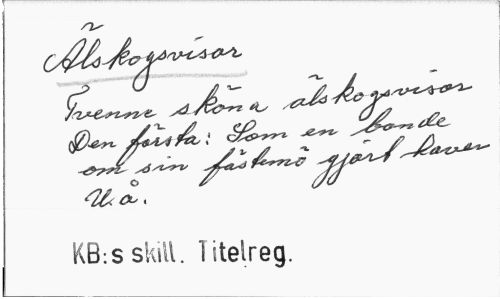 Älskogsvisor
Tvenne sköna älskogsvisor
Den första: Som en bonde
om sin fästemö gjört haver
U.å.
KB:s skill. Titelreg.